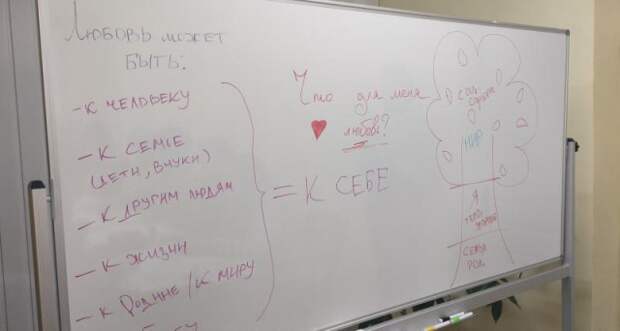 Любовь может
быть:
- к человеку
- к семье
(дети, внуки)
- к другим людям
- к жизни
- к Родине / к миру
= к себе
Что для меня
любовь?
мир
Я
семья
род